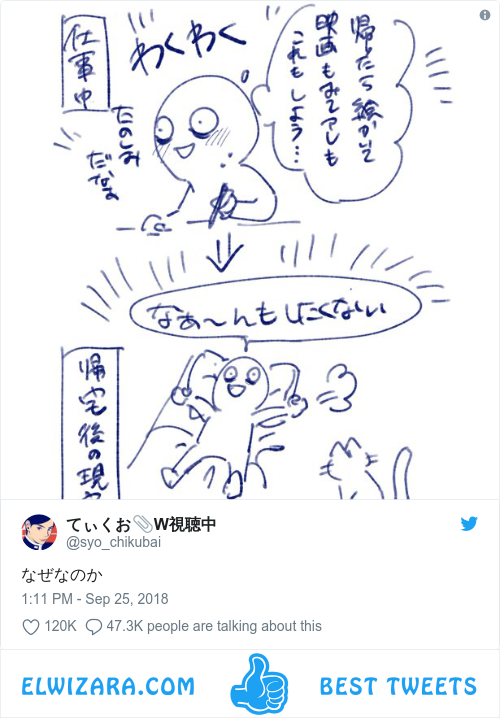 仕事中
わくわく
帰ったら絵かいて
映画もみてアレも
これもしよう…
たのしみ
だなぁ
なぁ〜んもしたくない
帰宅後の現
てぃくお📎W視聴中
@syo_chikubai
なぜなのか
1:11 PM - Sep 25, 2018
120K 47.3K people are talking about this
ELWIZARA.COM BEST TWEETS